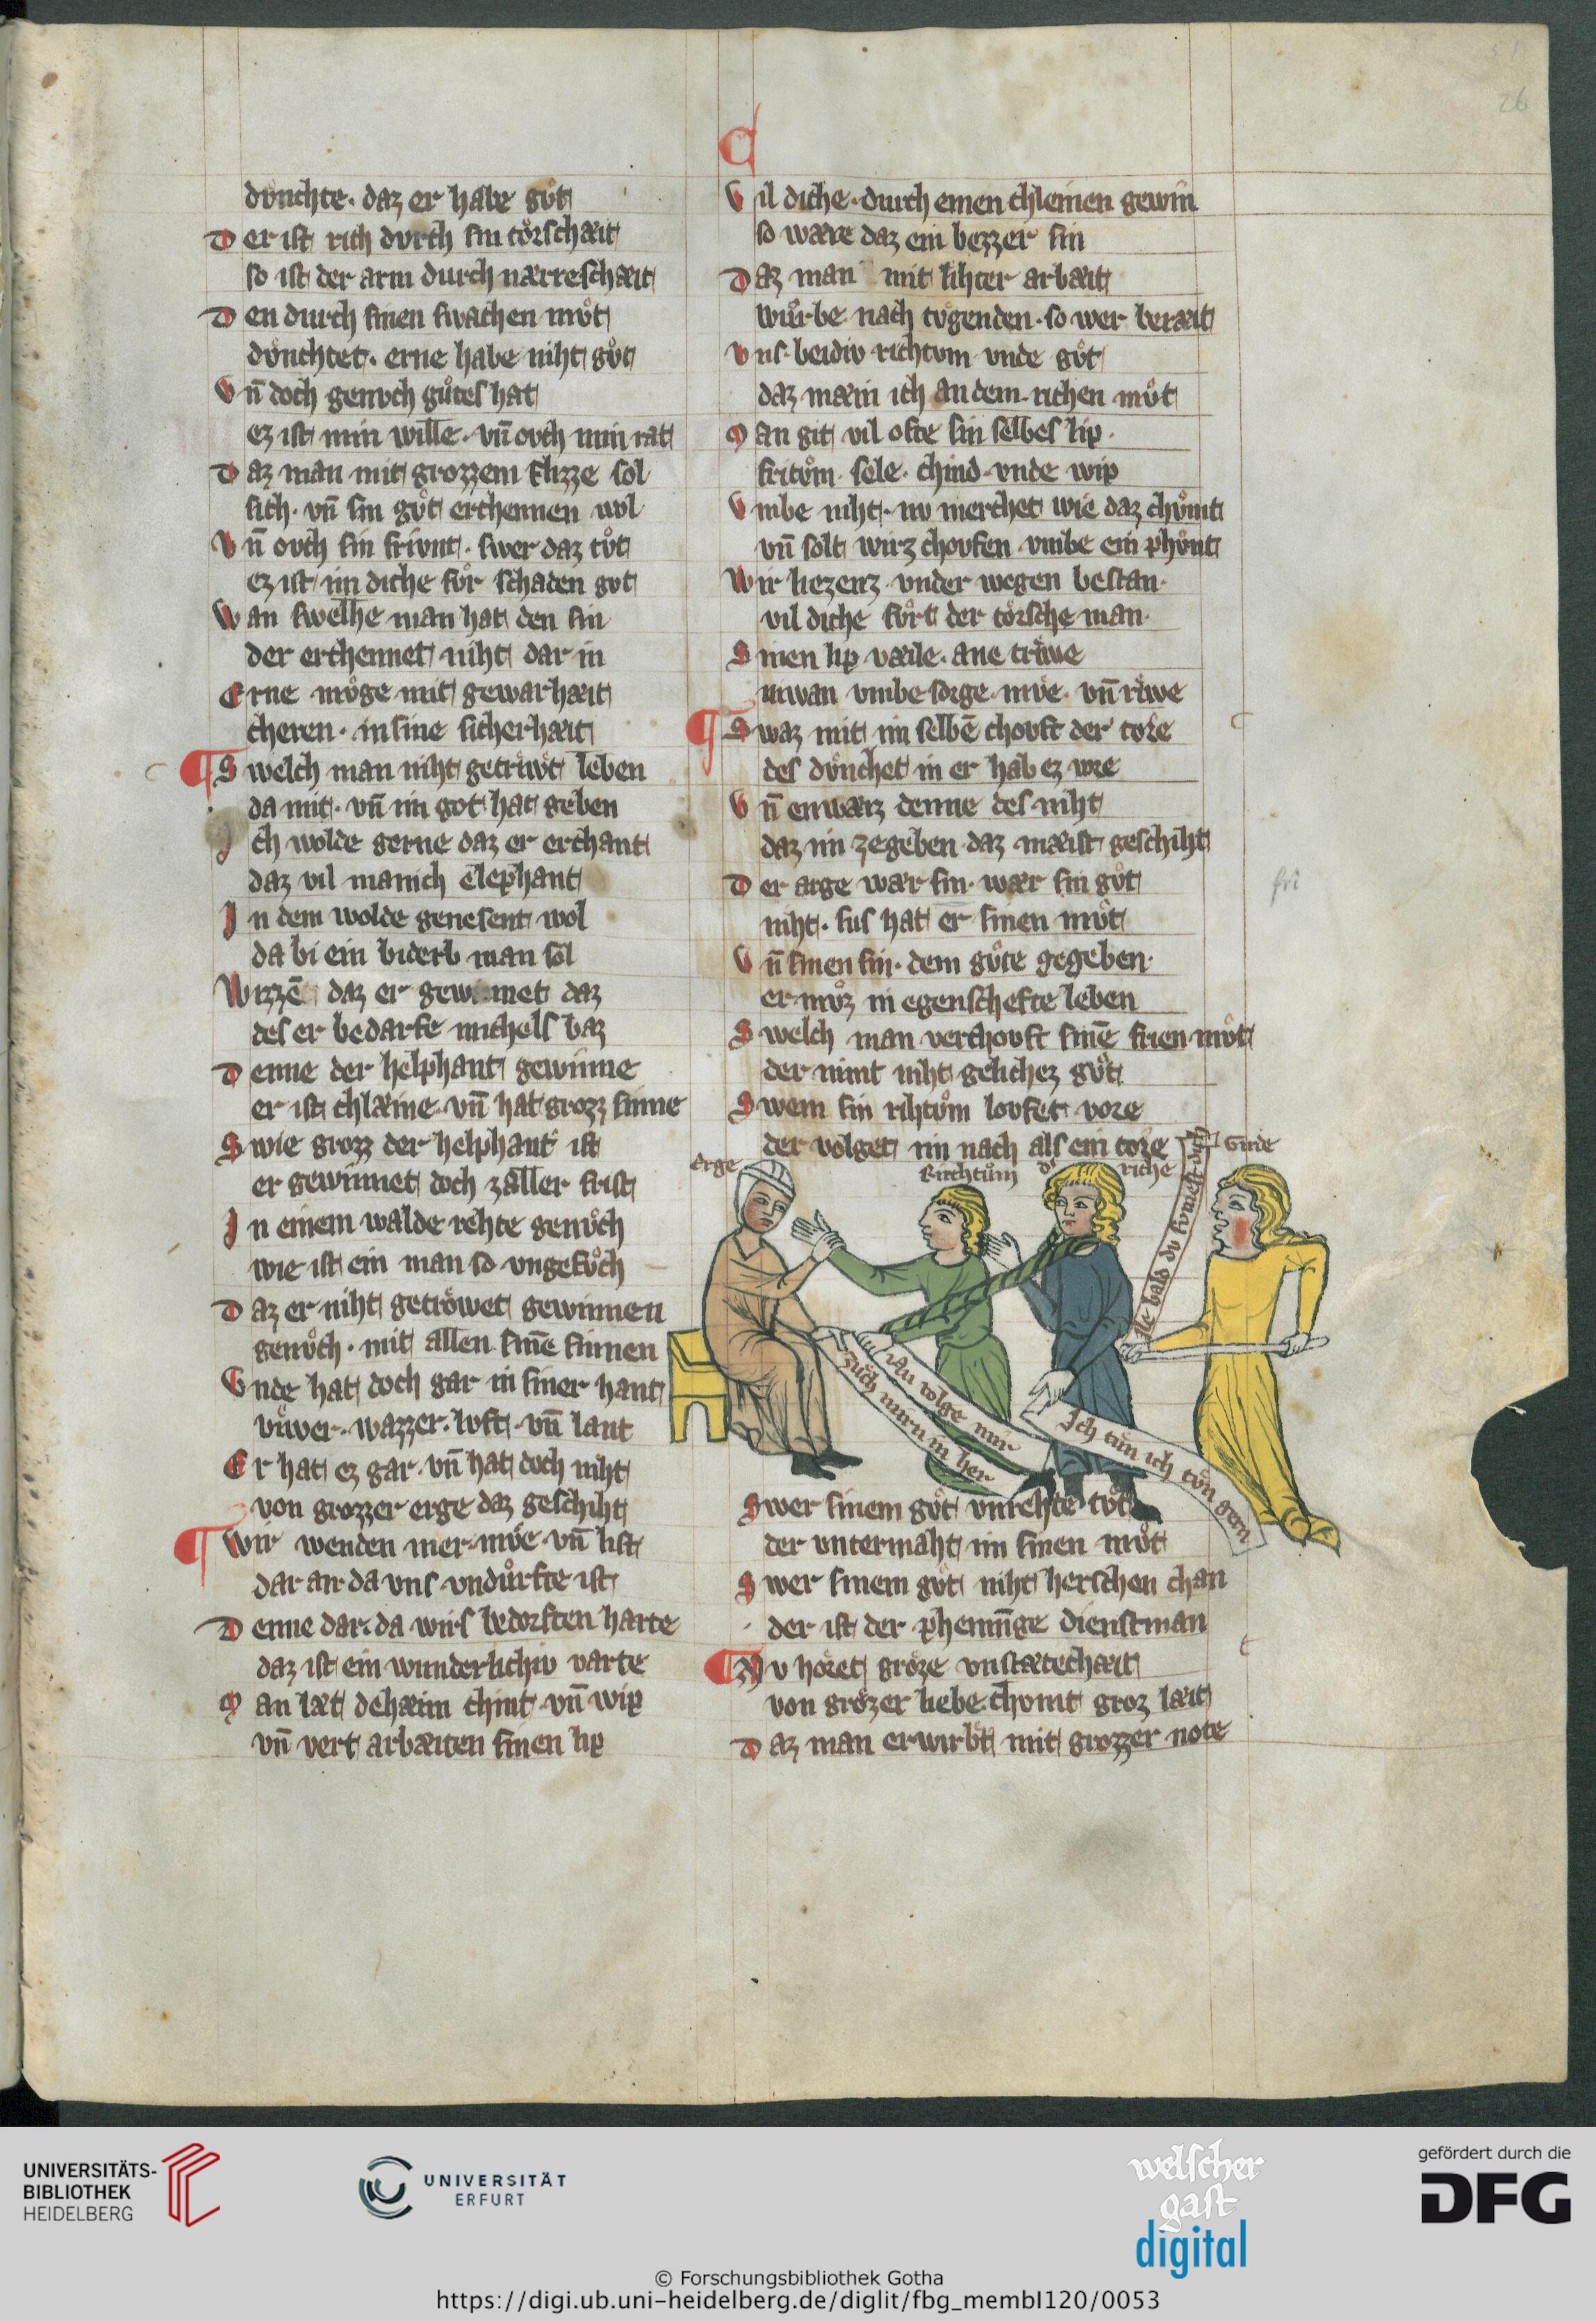 26
dvnchte · daz er habe gůt
Der ist rich dvrch sin tôrschæit
so ist der arm durch nærreschæit
Den durch sinen swachen můt
důnchtet · erne habe niht gůt
Vn̄ doch genvch gůtes hat
ez ist min wille · vn̄ ovch min rat
Daz man mit grozzem flizze sol
sich · vn̄ sin gůt erchennen wol
Vn̄ ovch sin frivnt · swer daz tůt
ez ist im diche fůr schaden got
Wan swelhe man hat den sin
der erchennet niht dar in
Erne můge mit gewarhæit
cheren · in sine sicherhæit
Swelch man niht getriwt leben
da mit · vn̄ im got hat geben
Ich wolde gerne daz er erchant
daz vil manich elephant
In dem wolde genesent wol
da bi ein biderb man sol
Wizzē daz er gewinnet daz
des er bedarfe michels baz
Denne der helphant gewinne
er ist chlæine · vn̄ hat grozz sinne
Swie grozz der helphant ist
er gewinnet doch zaller frist
In einem walde rehte genůch
wie ist ein man so vngefůch
Daz er niht getrôwet gewinnen
genůch · mit allen sinē sinnen
Vnde hat doch gar in siner hant
vůwer · wazzer · lvft · vn̄ lant
Er hat ez gar · vn̄ hat doch niht
von grozzer erge daz geschiht
Wir wenden mer · můe · vn̄ list
dar an da vns vndůrfte ist
Denne dar · da wirs bedorften harte
daz ist ein wunderlichiv varte
Man læt dehæim chint · vn̄ wip
vn̄ vert arbæiten sinen lip
C
Vil diche · durch einen chleinen gewin
so wære daz ein bezzer sin
Daz man mit lihter arbæit
wůrbe nach tvgenden · so wer beræit
Vns · beidiv richtvm vnde gůt
daz mæin ich an dem richen můt
Man git vil ofte sin selbes lip ·
fritům · sele · chind · vnde wip
Vmbe niht · nv merchet wie daz chůmt
vn̄ solt wirz chovfen vmbe ein phůnt
Wir liezenz vnder wegen bestan ·
vil diche fůrt der tôrsche man ·
Sinen lip væile · ane triwe
niwan vmbe sorge · můe · vn̄ riwe
Swaz mit im selbē chovft der tore
des důnchet in er hab ez vore
Vn̄ enwærz denne des niht
daz im zegeben daz mæist geschiht
Der arge wær sin · wær sin gůt
niht · sus hat er sinen můt
Vn̄ sinen sin · dem gůte gegeben ·
er můz in egenschefte leben
Swelch man verchovft sinē frien můt
der nimt niht gelichez gůt
Swem sin rihtům lovfet vore
der volget im nach als ein tore
Erge
Richtům
d' riche
Girde
Ile bald dv svmest dich
Nu volge mir
zůch mirn in her
Ich tůn ich tůn gern
Swer sinem gůt vnrehte tůt
der vntermaht im sinen můt
Swer sinem gůt niht herschen chan
der ist der phennīge dienstman
Nv hôret grôze vnstætechæit
von grôzer liebe · chvmt groz læit
Daz man erwirbt mit grozzer note
UNIVERSITÄTS-
BIBLIOTHEK
HEIDELBERG
UNIVERSITÄT
ERFURT
welscher
gast
digital
gefördert durch die
DFG
© Forschungsbibliothek Gotha
https://digi.ub.uni-heidelberg.de/diglit/fbg_membI120/0053